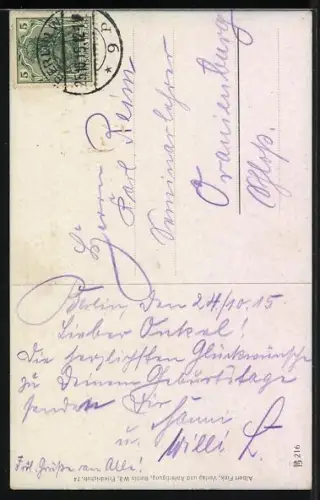 5 5
BERLIN W
9 P
Herrn
Karl
Seminarlehrer
Oranienburg
Schloß.
Berlin, den 24/10.15.
Lieber Onkel!
Die herzlichsten Glückwünsche
zu Deinem Geburtstage
senden Dir
Hanni
u. Willi L.
Frdl. Grüße an Alle!
Albert Fink, Verlag und Anfertigung, Berlin W.8, Friedrichstr. 74
216